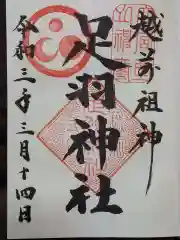 越前祖神
足羽神社
令和三年三月十四日